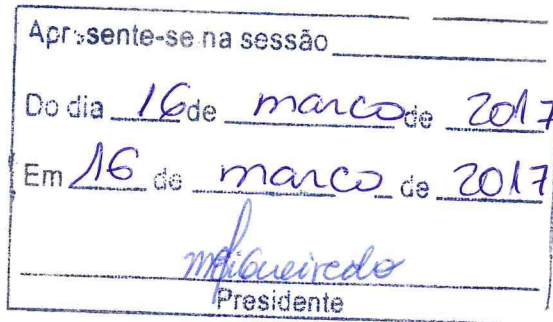 Apresente-se na sessão
Do dia 16 de marco de 2017
Em 16 de marco de 2017
Presidente